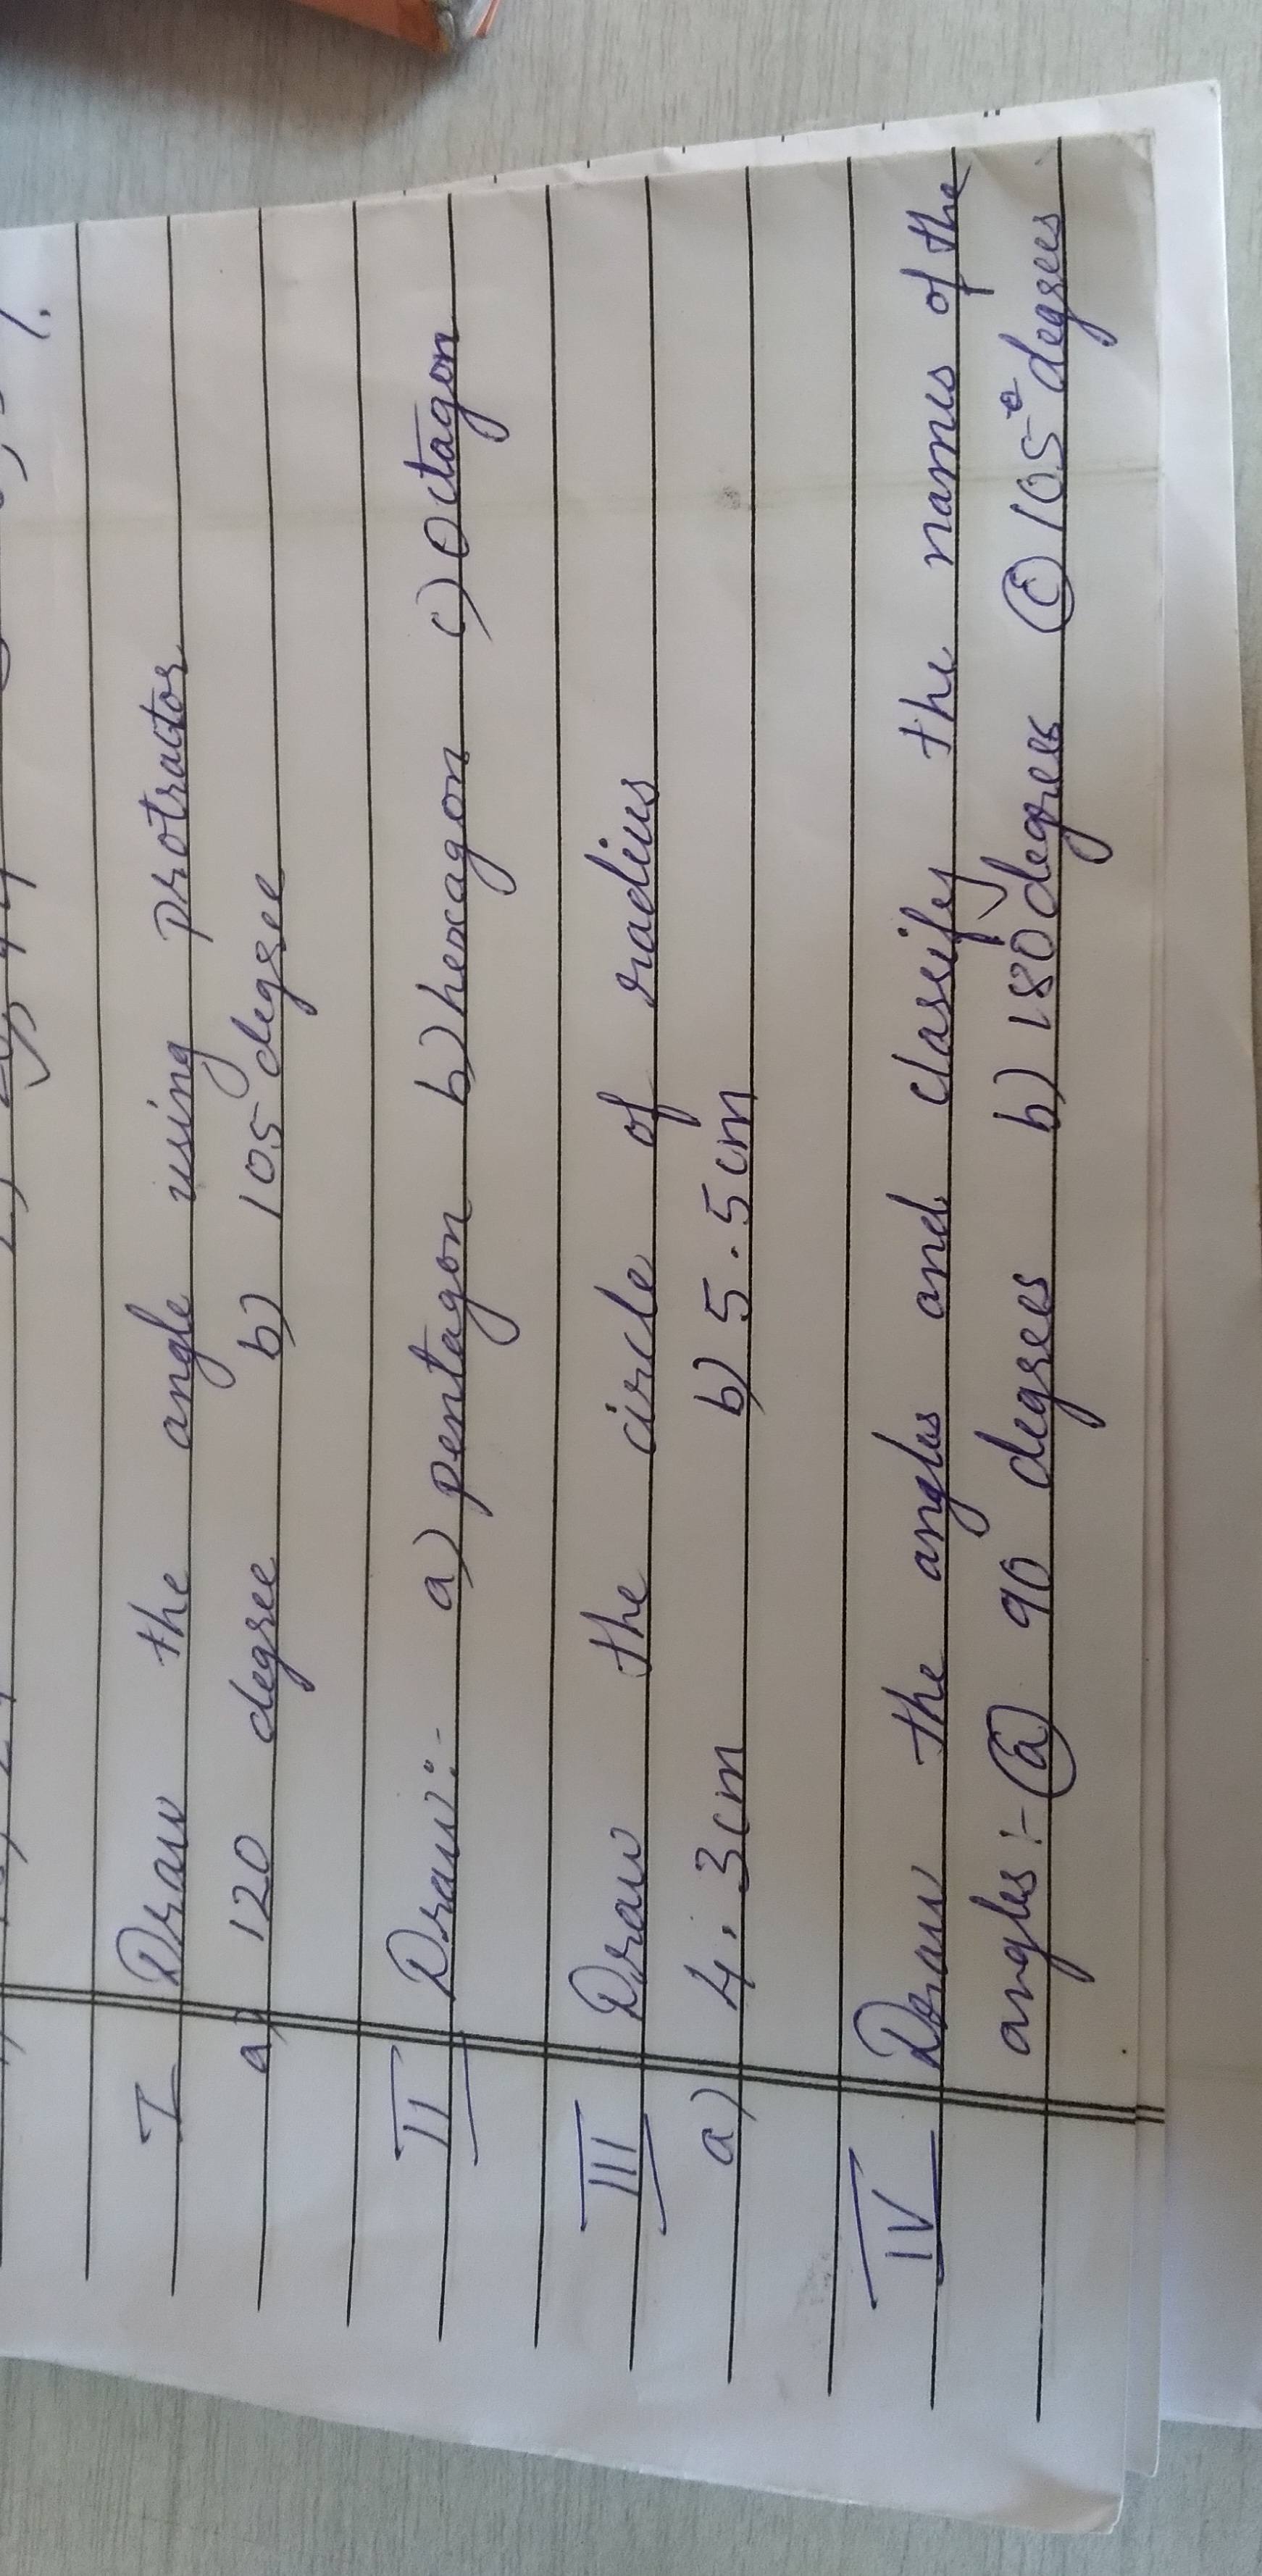 I Draw the angle using protractor
a) 120 degree b) 105 degree
II Draw:- a) pentagon b) hexagon c) Octagon
III Draw the circle of radius
a) 4.3cm b) 5.5cm
IV Draw the angles and classify the names of the
angles :- (a) 90 degrees b) 180 degrees (c) 105° degrees